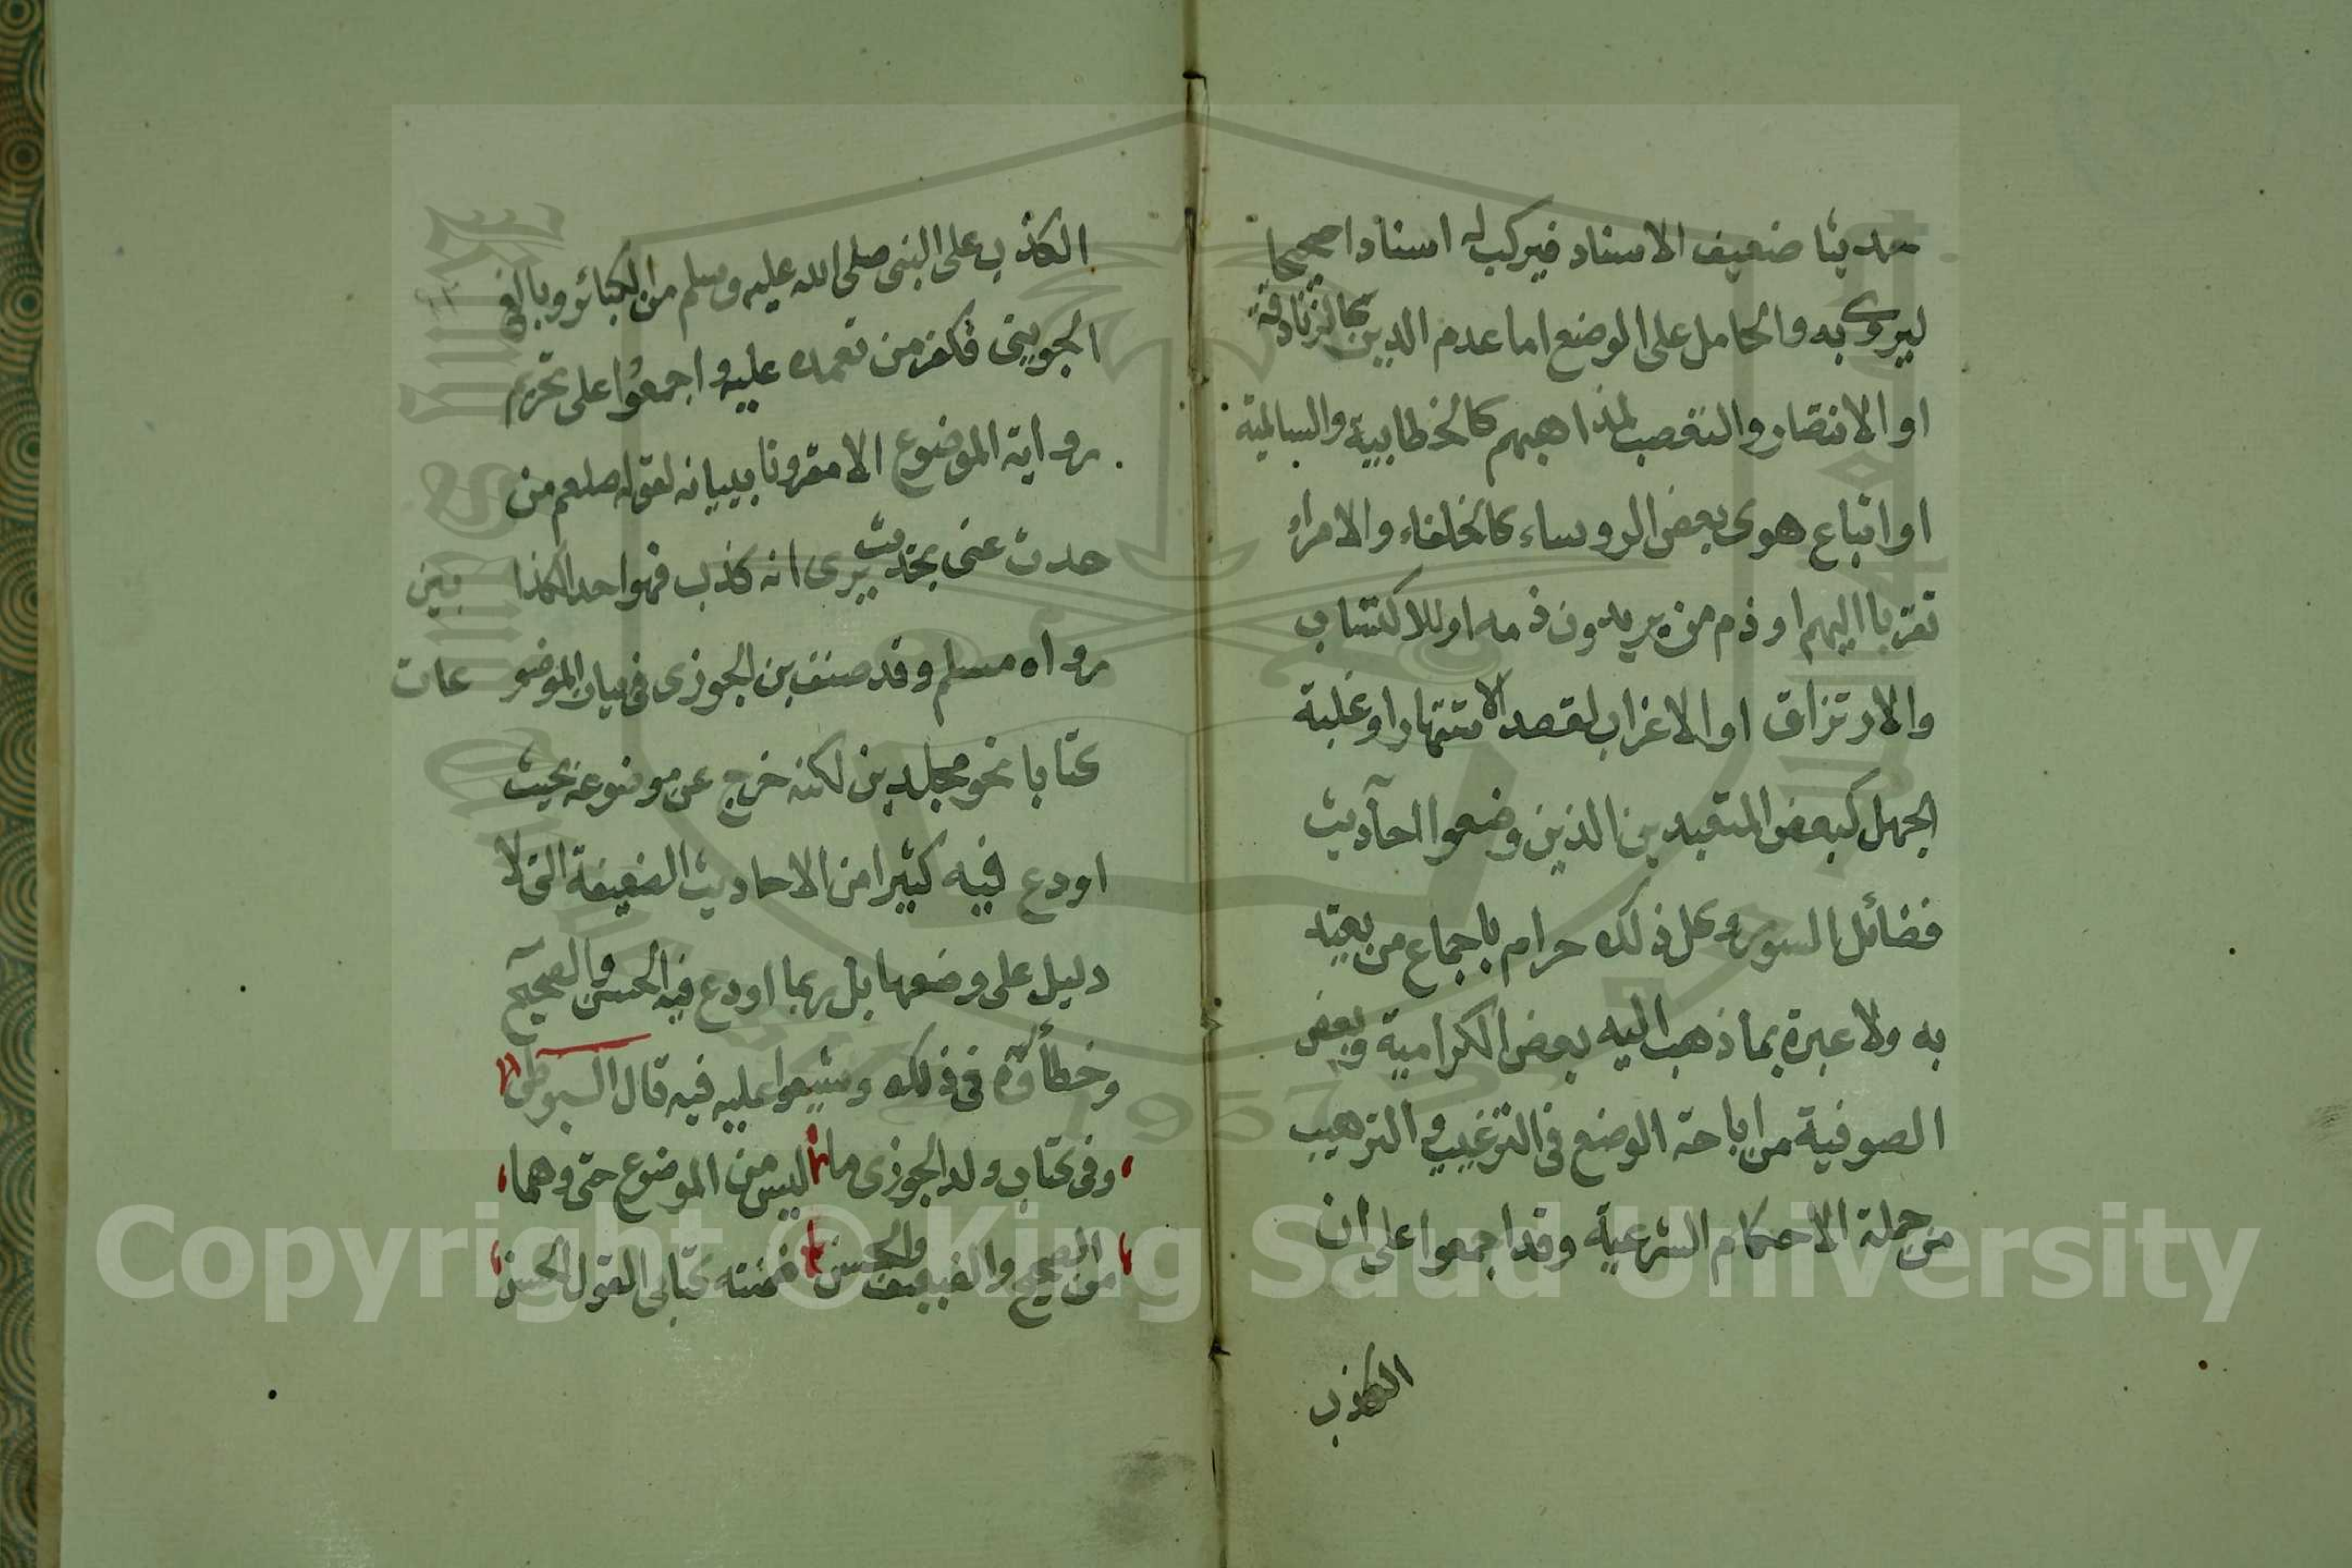 حديثا ضعيف الاسناد فيركب له اسنادا صحيحا
ليروى به والحامل على الوضع اما عدم الدين كالزنادقة
او الانتصار والتعصب لمذاهبهم كالخطابية والسالمية
او اتباع هوى بعض الروساء كالخلفاء والامراء
تقربا اليهم او ذم من يريدون ذمه او للاكتساب
والارتزاق او الاغراب لقصد الاشتهار او غلبة
الجهل كبعض المتعبدين الذين وضعوا احاديث
فضائل السور وكل ذلك حرام باجماع من يعتد
به ولا عبرة بما ذهب اليه بعض الكرامية وبعض
الصوفية من اباحة الوضع في الترغيب والترهيب
من جملة الاحكام الشرعية وقد اجمعوا على ان
الكذب
الكذب على النبى صلى الله عليه وسلم من الكبائر وبالغ
الجوينى فكفر من تعمده عليه واجمعوا على تحريم
رواية الموضوع الا مقرونا ببيانه لقوله صلعم من
حدث عنى بحديث يرى انه كذب فهو احد الكذا بين
رواه مسلم وقد صنف بن الجوزى فى بيان الموضو عات
كتابا نحو مجلدين لكنه خرج عن موضوعه بحيث
اودع فيه كثيرا من الاحاديث الضعيفة التى لا
دليل على وضعها بل ربما اودع فيه الحسن والصحيح
وخطأوه فى ذلك وشيعوا عليه فيه قال السيوطى
وفى كتاب ولد الجوزى ما ليس من الموضوع حتى وهما
من الصحيح والضعيف والحسن ضمنته كتابى القول الحسن
Copyright © King Saud University
1957